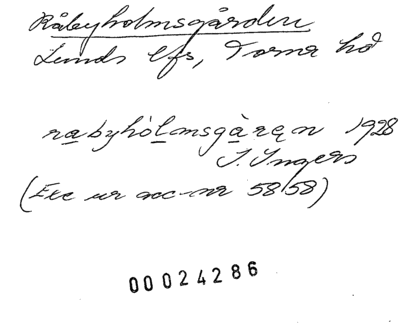 Råbyholmsgården
Lunds lfs, Torna hd
rabyhòlmsgàrąn 1928
I. Ingers
(Exc ur acc-nr 5858)
00024286